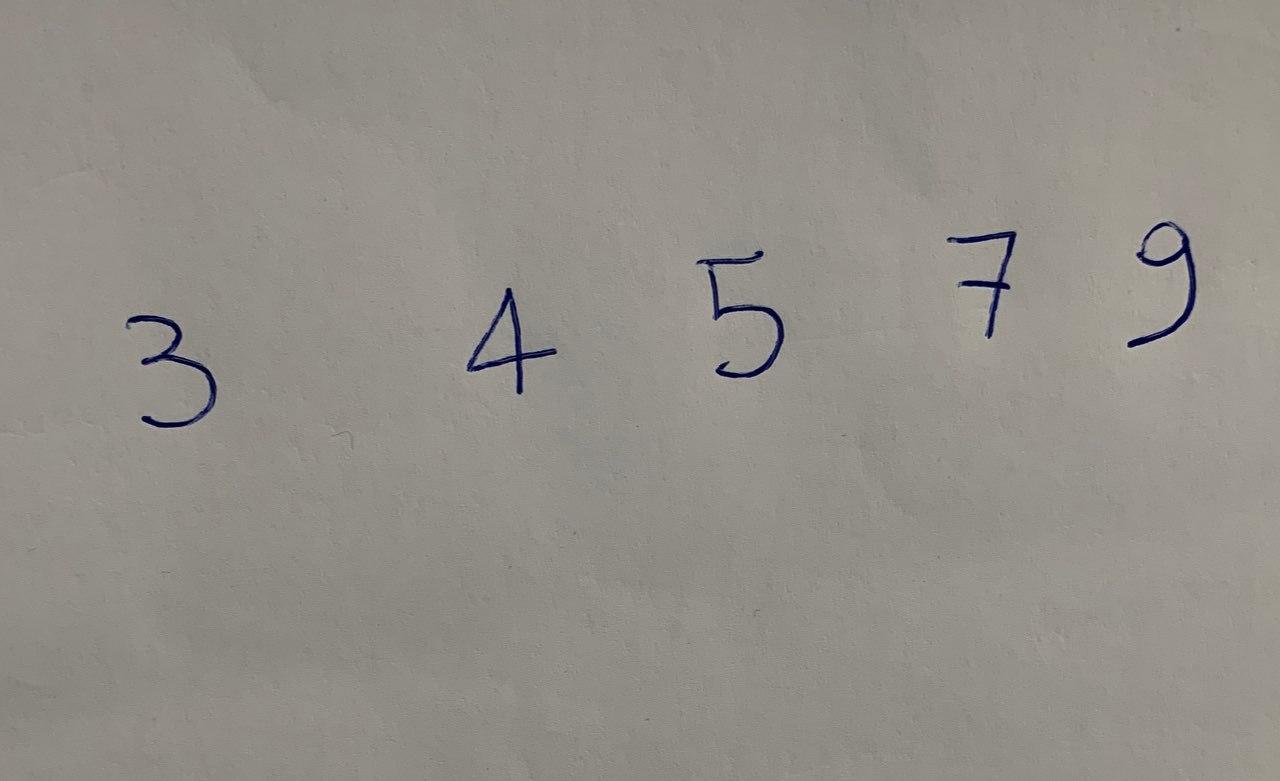 3 4 5 7 9